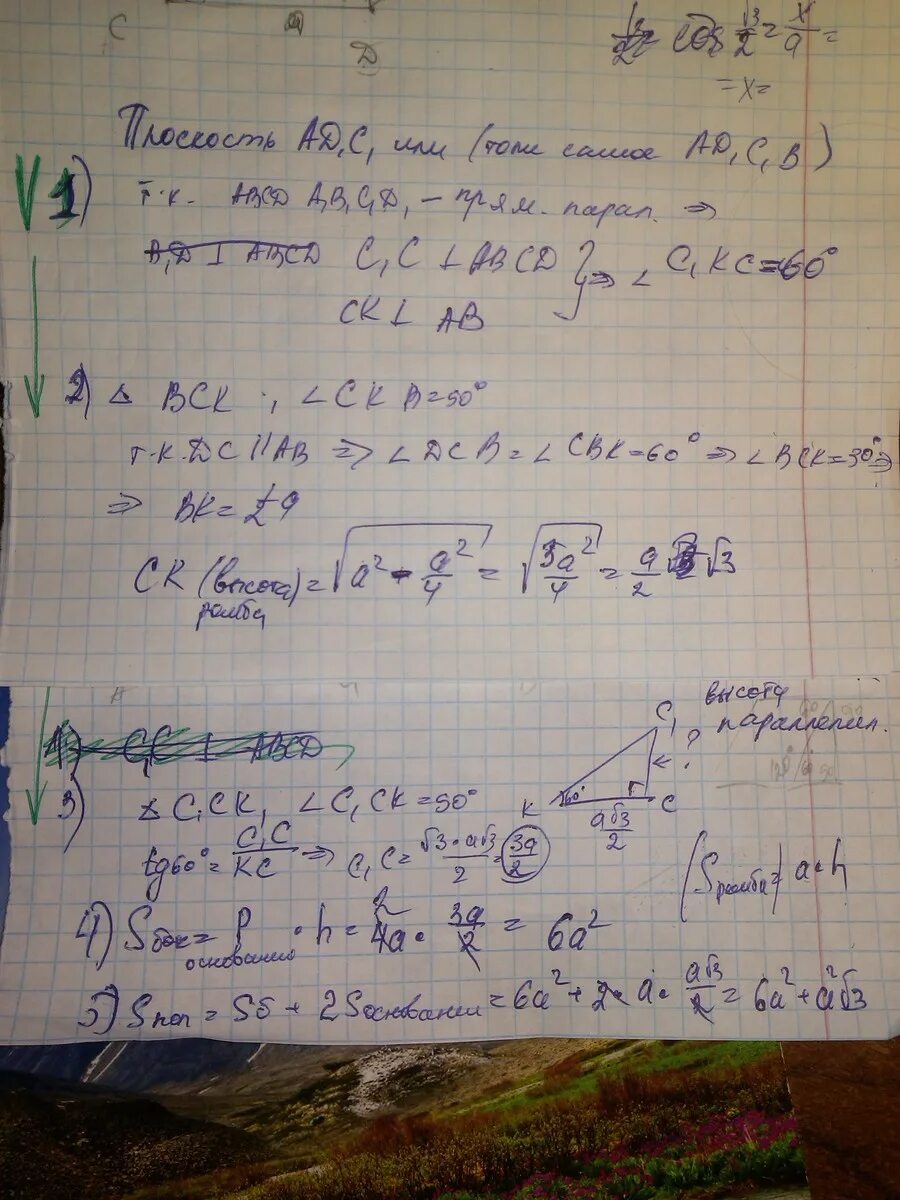 C
D
√3/2 = x/a =
= x =
Плоскость AD₁C₁ или (тоже самое AD₁C₁B)
1) т.к. ABCD A₁B₁C₁D₁ – прям. парал. ⇒
B₁D ⊥ ABCD C₁C ⊥ ABCD } ⇒ ∠ C₁KC = 60°
CK ⊥ AB
2) △ BCK , ∠CKB = 90°
т.к. DC || AB ⇒ ∠DCB = ∠CBK = 60° ⇒ ∠BCK = 30° ⇒
⇒ BK = ½a
CK (высота ромба) = √(a² - a²/4) = √(3a²/4) = a/2 √3
C₁C ⊥ ABCD
высота
параллепип.
C₁
?
3) △ C₁CK, ∠C₁CK = 90°
K 60° C
a√3/2
tg60° = C₁C/KC ⇒ C₁C = √3·a√3/2 = 3a/2
(Sромба =) a·h
4) Sбок = P основания · h = 4a · 3a/2 = 6a²
2
5) Sпол = Sб + 2Sоснования = 6a² + 2·a· a√3/2 = 6a² + a²√3